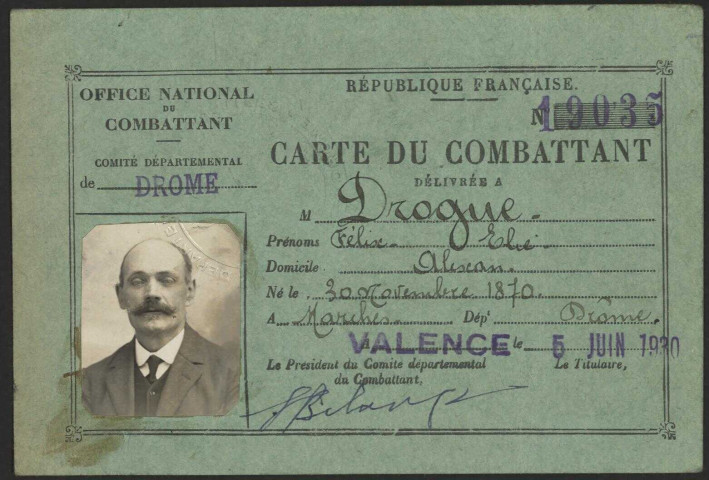 OFFICE NATIONAL
DU
COMBATTANT
COMITÉ DÉPARTEMENTAL
de DROME
RÉPUBLIQUE FRANÇAISE.
N 19035
CARTE DU COMBATTANT
DÉLIVRÉE A
M Drogue
Prénoms Félix Elie
Domicile Alixan.
Né le 30 Novembre 1870.
A Marches Dépt Drôme.
VALENCE le 5 JUIN 1930
Le Président du Comité départemental
du Combattant,
Le Titulaire,